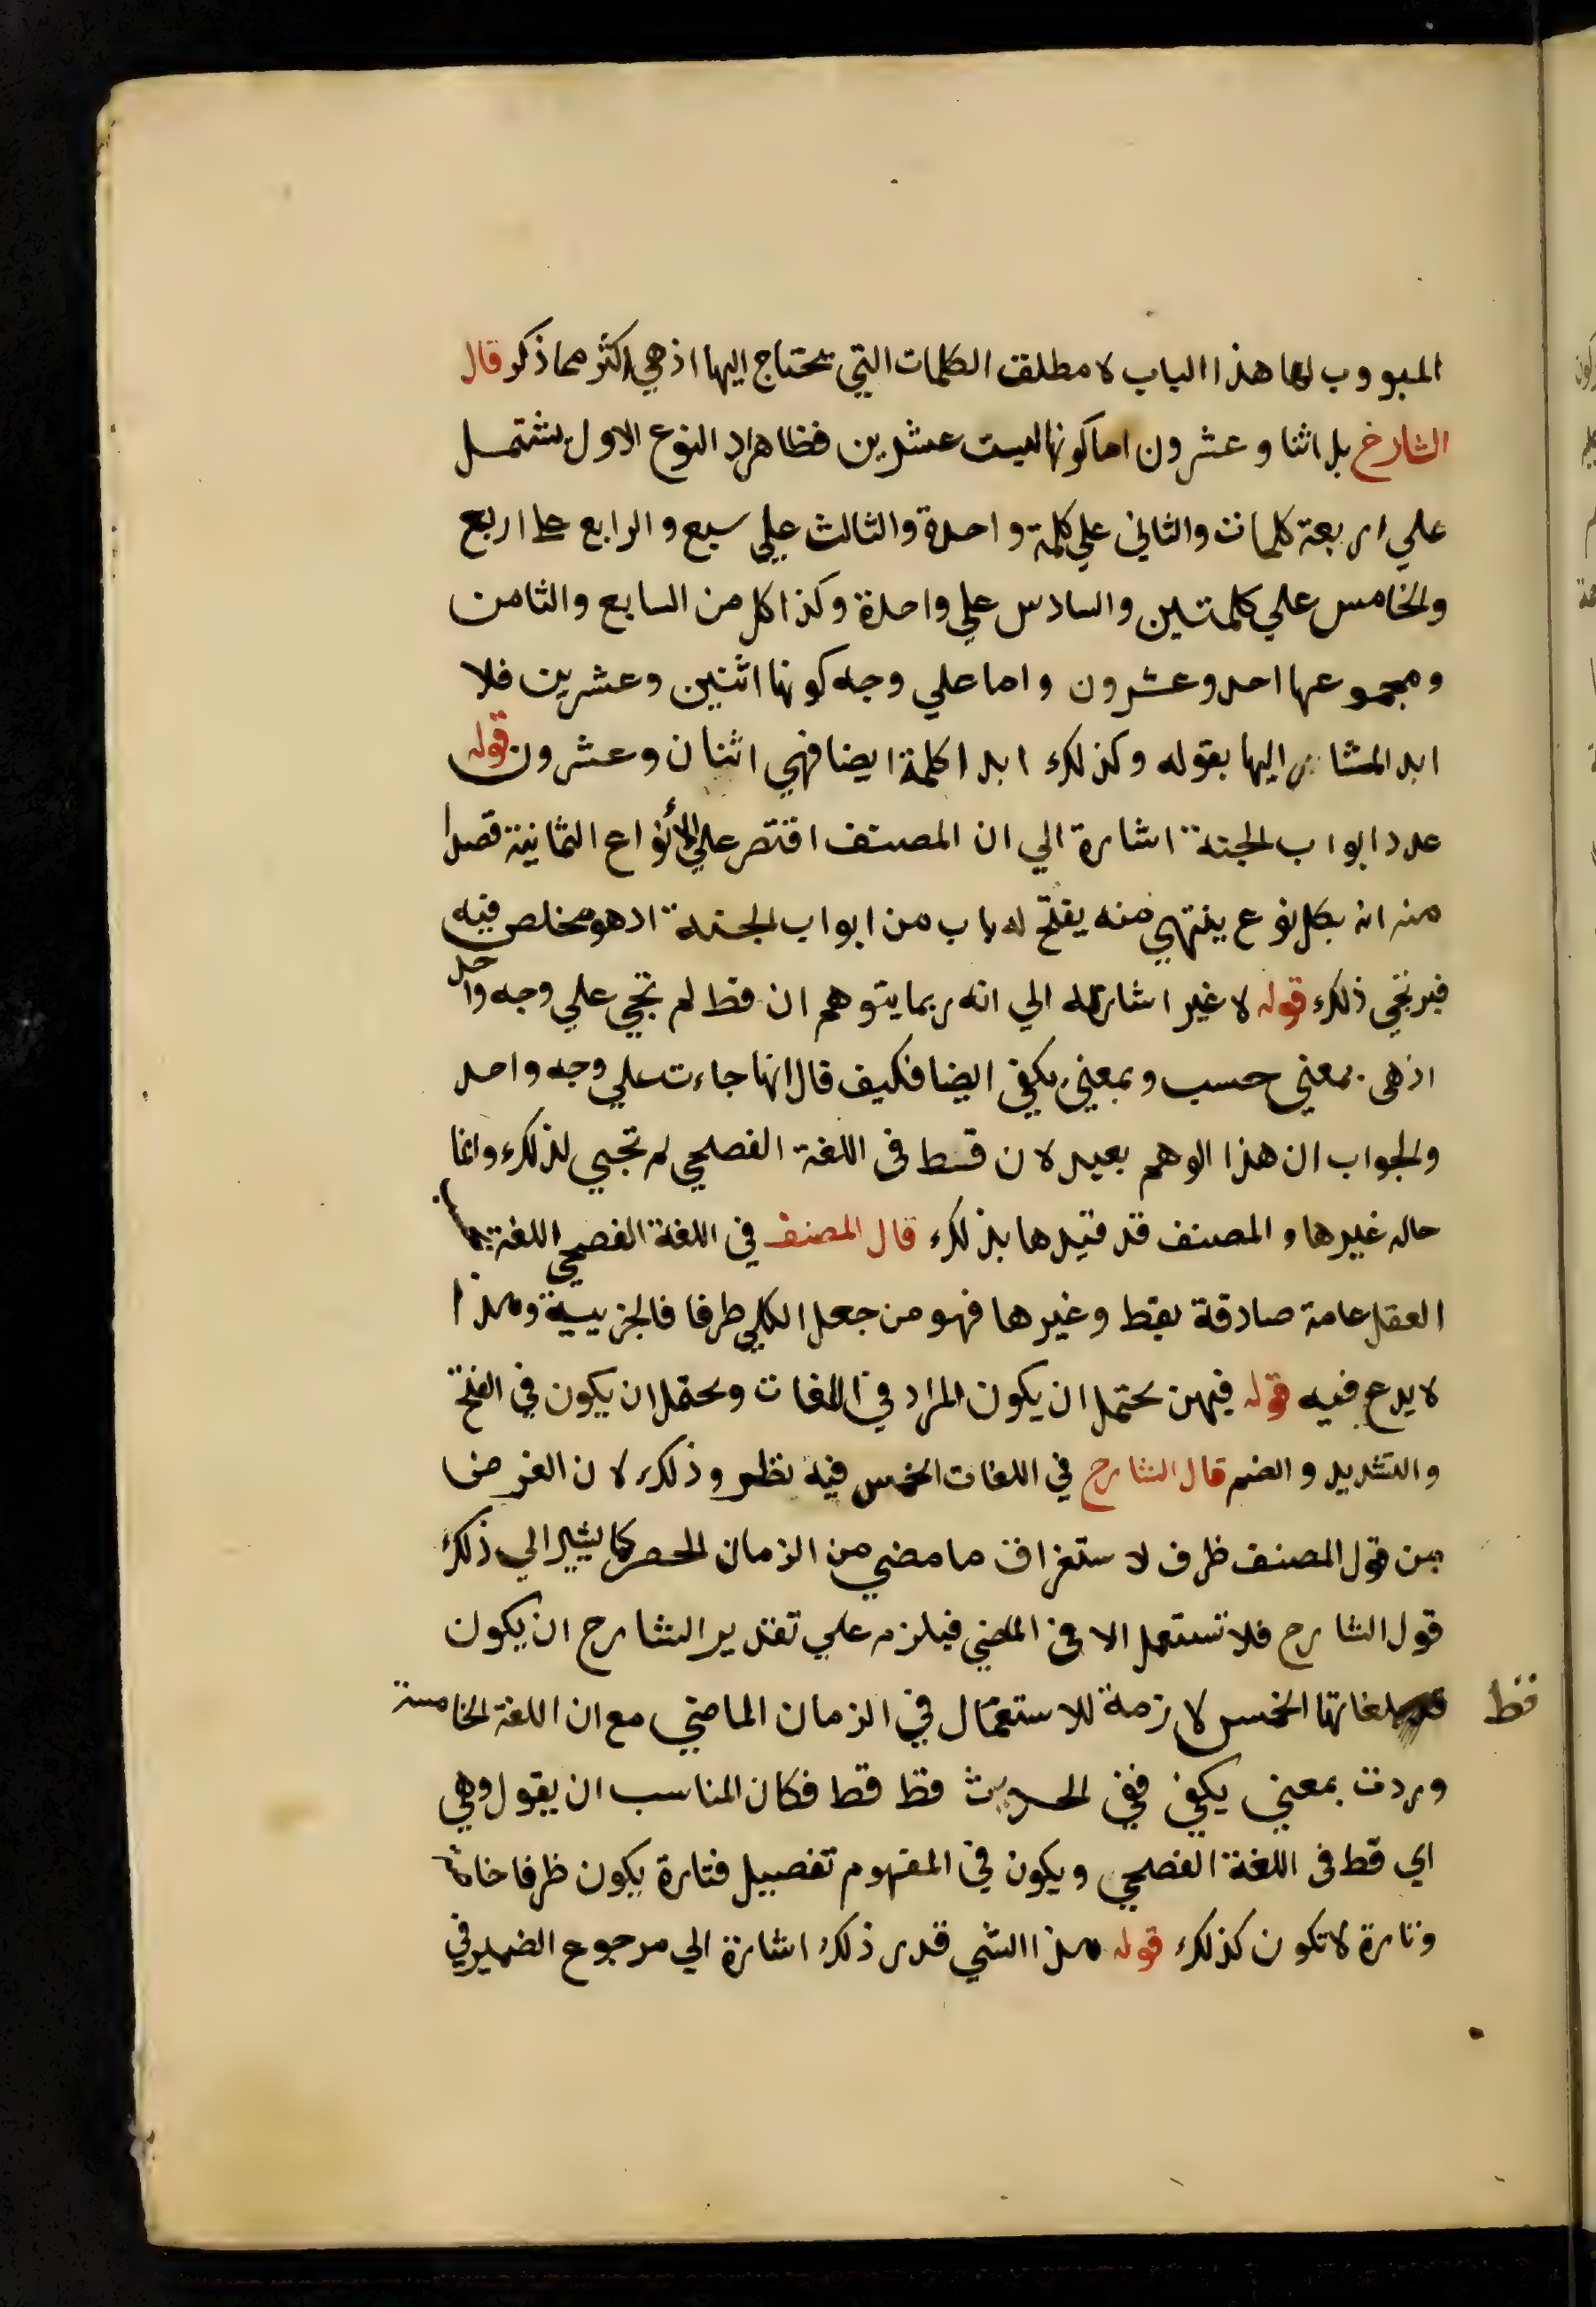 المبووب لها هذا الباب لا مطلق الكلمات التي تحتاج اليها اذ هي اكثر مما ذكر قال
الشارح بل اثنا وعشرون اما كونها ليست عشرين فظاهر اد النوع الاول يشتمل
علي اربعة كلمات والثاني علي كلمة واحدة والثالث علي سبع والرابع علي اربع
والخامس علي كلمتين والسادس علي واحدة وكذا كل من السابع والثامن
ومجموعها احد وعشرون واما علي وجه كونها اثنين وعشرين فلا
ابد المشار اليها بقوله وكذلك ابدا كلمة ايضا فهي اثنان وعشرون قوله
عدد ابواب الجنة اشارة الي ان المصنف اقتصر علي الأنواع الثمانية قصدا
منه انه بكل نوع ينتهي منه يفتح له باب من ابواب الجنة ادهو مخلص فيه
فيرتجي ذلك قوله لا غير اشارة الي انه ربما يتوهم ان قط لم تجي علي وجه واحد
اذ هي بمعني حسب وبمعني يكفي ايضا فكيف قال انها جاءت علي وجه واحد
والجواب ان هذا الوهم بعيد لان قط في اللغة الفصحي لم تجيي لذلك وانما
حاله غيرها والمصنف قد قيدها بذلك قال المصنف في اللغة الفصحي اللغة
العقل عامة صادقة بقط وغيرها فهو من جعل الكلي طرفا فالجزيية وهذا
لا يدع فيه قوله فيهن يحتمل ان يكون المراد في اللغات ويحتمل ان يكون في الفتح
والتشديد والضم قال الشارح في اللغات الخمس فيه نظر وذلك لان الغرض
من قول المصنف ظرف لاستغراق ما مضي من الزمان الحصر كما يشير الي ذلك
قول الشارح فلا تستعمل الا في الماضي فيلزم علي تقدير الشارح ان يكون
قط لغاتها الخمس لازمة للاستعمال في الزمان الماضي مع ان اللغة الخامسة
وردت بمعني يكفي ففي الحديث قط قط فكان المناسب ان يقول وهي
اي قط في اللغة الفصحي ويكون في المفهوم تفصيل فتارة يكون ظرفا
وتارة لا تكون كذلك قوله هذا الشي قدر ذلك اشارة الي مرجوع الضمير في